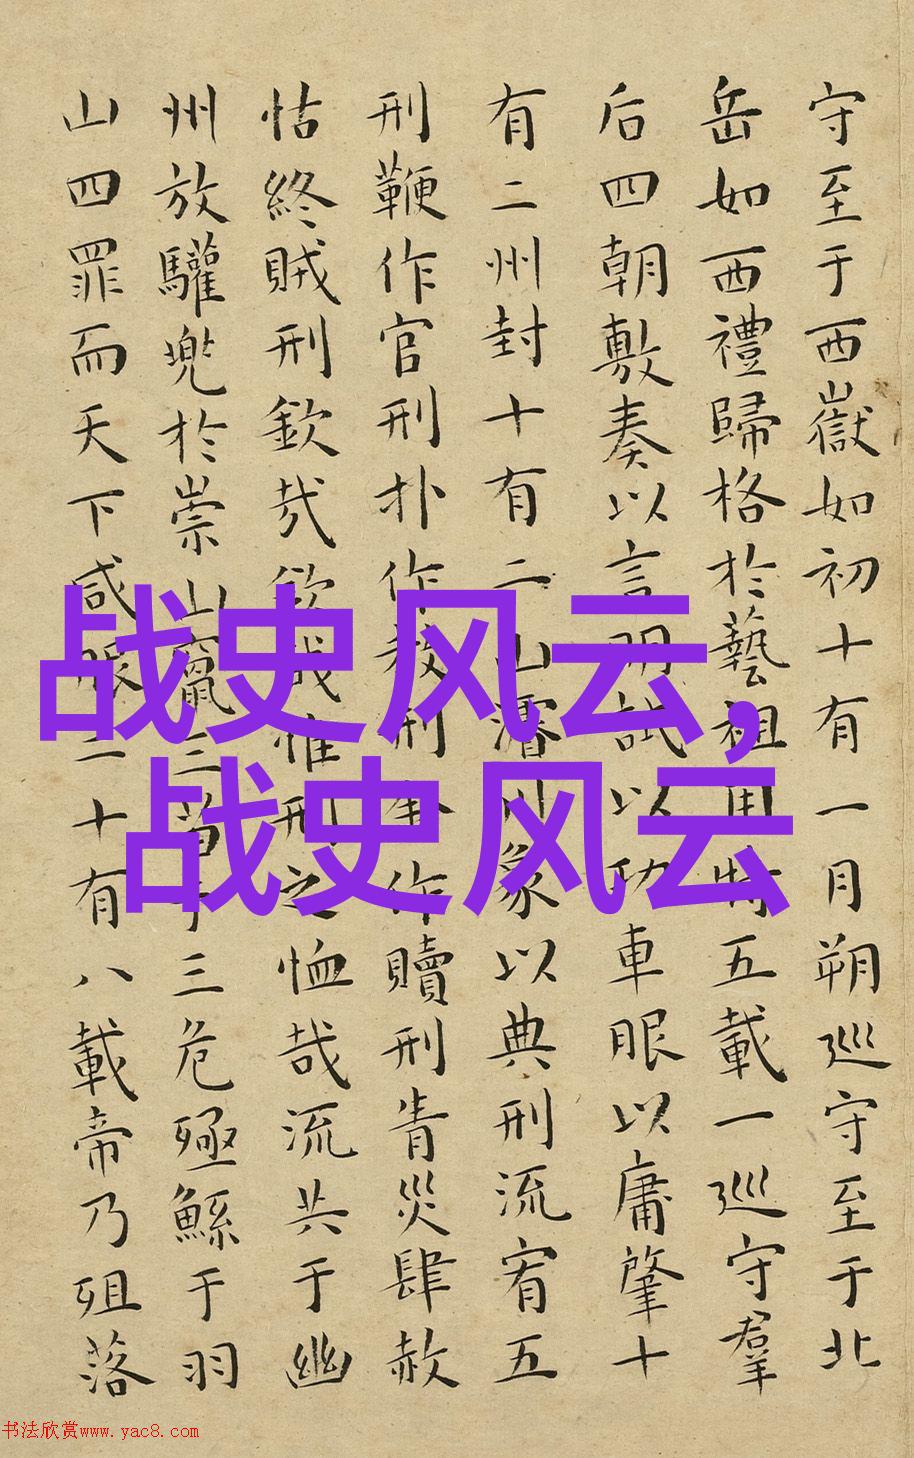 守至于西嶽如初十有一月朔巡守至于北
岳如西禮歸格於藝祖用特五載一巡守羣
后四朝敷奏以言明試以功車服以庸肇十
有二州封十有二山濬川象以典刑流宥五
刑鞭作官刑扑作教刑金作贖刑眚災肆赦
怙終賊刑欽哉欽哉惟刑之恤哉流共于幽
州放驩兜於崇山竄三苗于三危殛鯀于羽
山四罪而天下咸服二十有八載帝乃殂落
战史风云,
战史风云
书法欣赏www.yac8.com